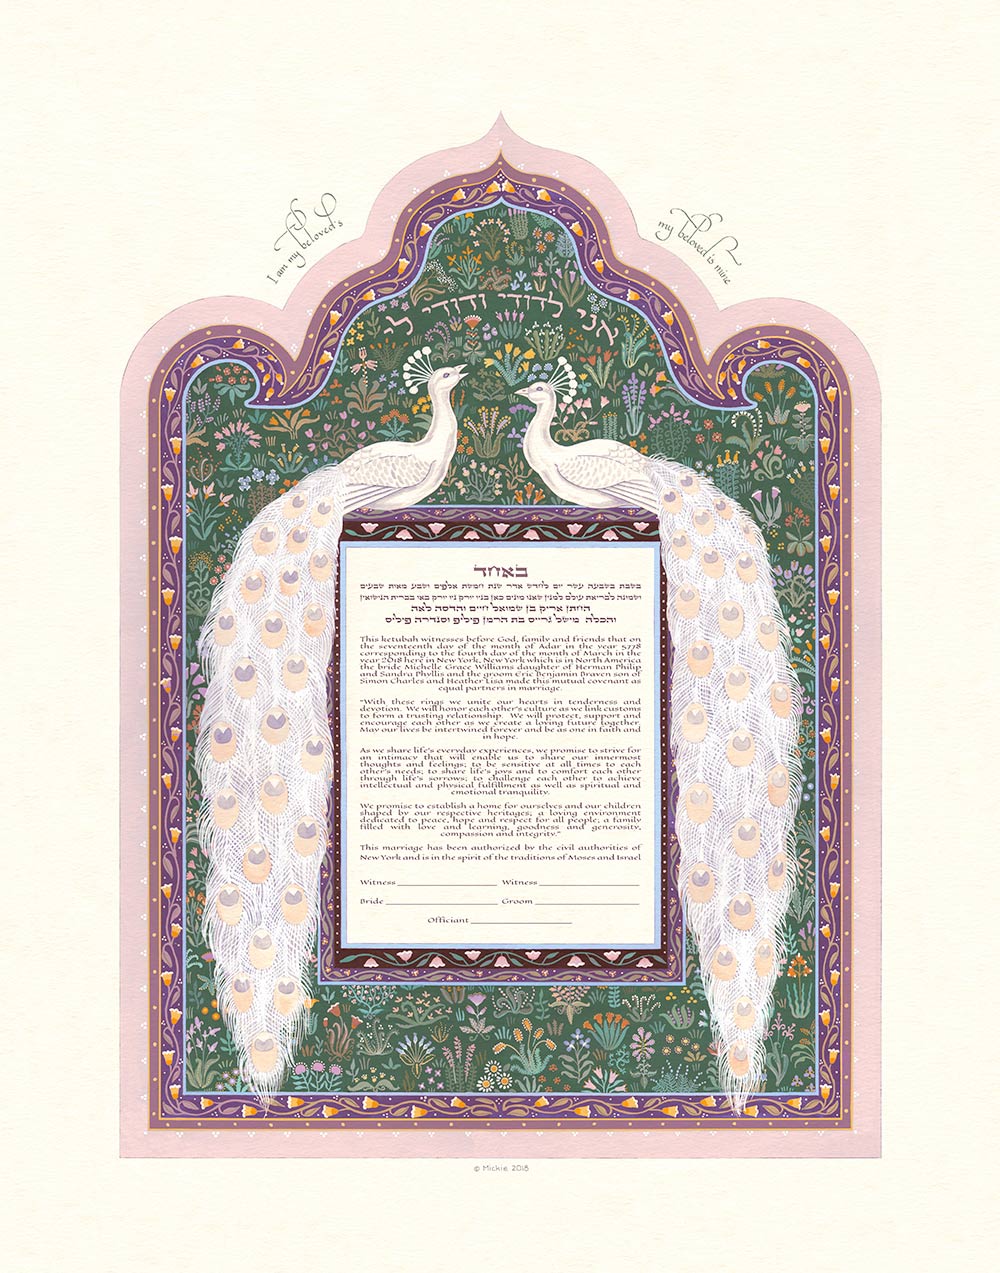 I am my beloved's
my beloved is mine
אני לדודי ודודי לי
באחד
בשבת בשבעה עשר יום לחדש אדר שנת חמשת אלפים ושבע מאות שבעים
ושמונה לבריאת עולם למנין שאנו מונים כאן בניו יורק ניו יורק באי בברית הנישואין
החתן אריק בן שמואל חיים והדסה לאה
והכלה מישל גרייס בת הרמן פיליפ וסנדרה פיליס
This ketubah witnesses before God, family and friends that on
the seventeenth day of the month of Adar in the year 5778
corresponding to the fourth day of the month of March in the
year 2018 here in New York, New York which is in North America
the bride Michelle Grace Williams daughter of Herman Philip
and Sandra Phyllis and the groom Eric Benjamin Braven son of
Simon Charles and Heather Lisa made this mutual covenant as
equal partners in marriage.
"With these rings we unite our hearts in tenderness and
devotion. We will honor each other's culture as we link customs
to form a trusting relationship. We will protect, support and
encourage each other as we create a loving future together.
May our lives be intertwined forever and be as one in faith and
in hope.
As we share life's everyday experiences, we promise to strive for
an intimacy that will enable us to share our innermost
thoughts and feelings; to be sensitive at all times to each
other's needs; to share life's joys and to comfort each other
through life's sorrows; to challenge each other to achieve
intellectual and physical fulfillment as well as spiritual and
emotional tranquility.
We promise to establish a home for ourselves and our children
shaped by our respective heritages; a loving environment
dedicated to peace, hope and respect for all people; a family
filled with love and learning, goodness and generosity,
compassion and integrity."
This marriage has been authorized by the civil authorities of
New York and is in the spirit of the traditions of Moses and Israel
Witness Witness
Bride Groom
Officiant
© Mickie 2018